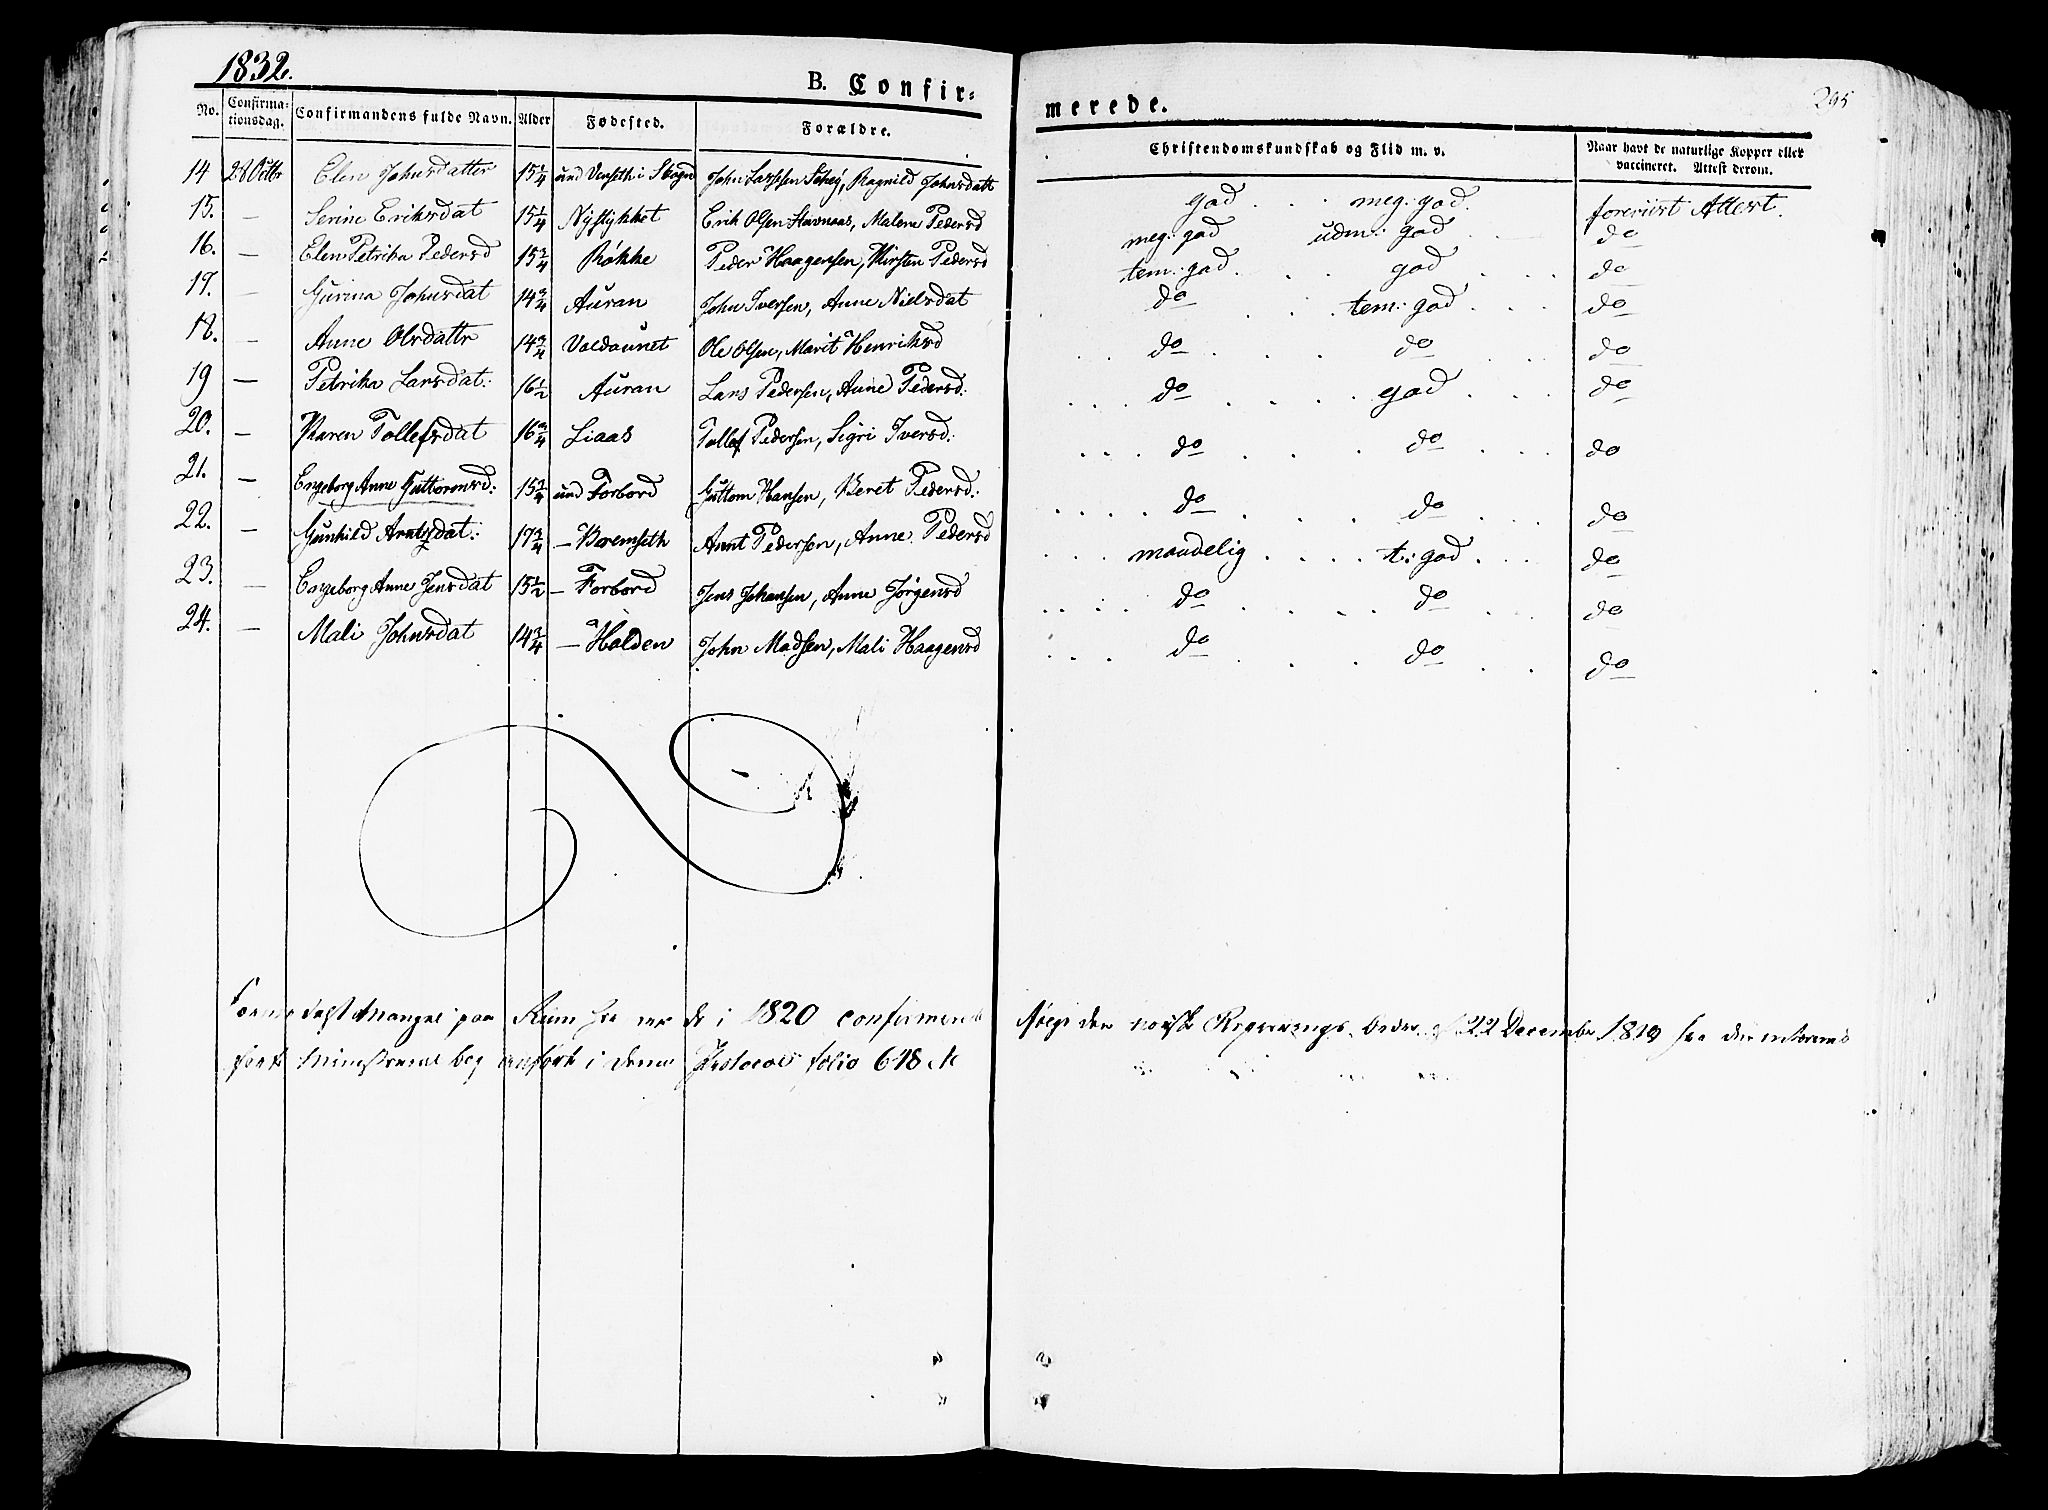 1832.
B. Confir-
merede.
295
No. Confirma-tionsdag. Confirmandens fulde Navn. Alder Fødested. Forældre. Christendomskundskab og Flid m. v. Naar havt de naturlige Kopper eller vaccineret. Attest derom.
14 28 Octbr Elen Johnsdatter 15 1/4 und Venseth i Skogn John Larssen, Ragnild Johnsdatt god . . . meg: god. foreviist Attest.
15. — Serine Eriksdat 15 1/4 Nÿstÿkket Erik Olsen Stavnaas, Malene Pedersd meg: god udm: god do
16. — Elen Petrika Pedersd 15 3/4 Røkke Peder Haagensen, Kirsten Pedersd tem: god . . . god . . . do
17. — Gurina Johnsdat 14 3/4 Auran John Iversen, Anne Nielsdat do . . . tem: god . . . do
18. — Anne Olsdattr 14 3/4 Voldaunet Ole Olsen, Marit Henriksd . . do . . . do . . do
19 — Petrika Larsdat: 16 1/2 Auran Lars Pedersen, Anne Pedersd: . . . do . . . . god . . . do
20. — Karen Tollefsdat 16 3/4 Liaas Tollef Pedersen, Sigri Iversd: . . . do . . . do . . . do
21. — Engeborg Anne Guttormsd: 15 3/4 und Forbord Guttom Hansen, Beret Pedersd: . . . . do . . . do . . . do
22. — Gunhild Arntsdat: 17 3/4 — Boremseth Arnt Pedersen, Anne Pedersd . . . maadelig . . . . t: god . . . do
23. — Engeborg Anne Jensdat 15 1/2 — Forbord Jens Johansen, Anne Jørgensd . . . . do . . . . do . . do
24. — Mali Johnsdat 14 3/4 — Holden John Madsen, Mali Haagensd . . . do . . . do . . . do
Mangel paa Rum her er de i 1820 confirmerede ifølge den norske Regjerings Order af 22 December 1819 her
bog anført i denne Protocol folio 648